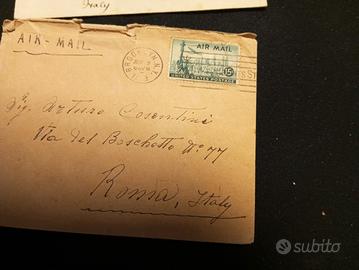 Italy
AIR-MAIL
BROOKLYN, N.Y.
AIR MAIL
15¢
UNITED STATES POSTAGE
Sig. Arturo Cosentini
Via del Boschetto No 77
Roma, Italy
subito